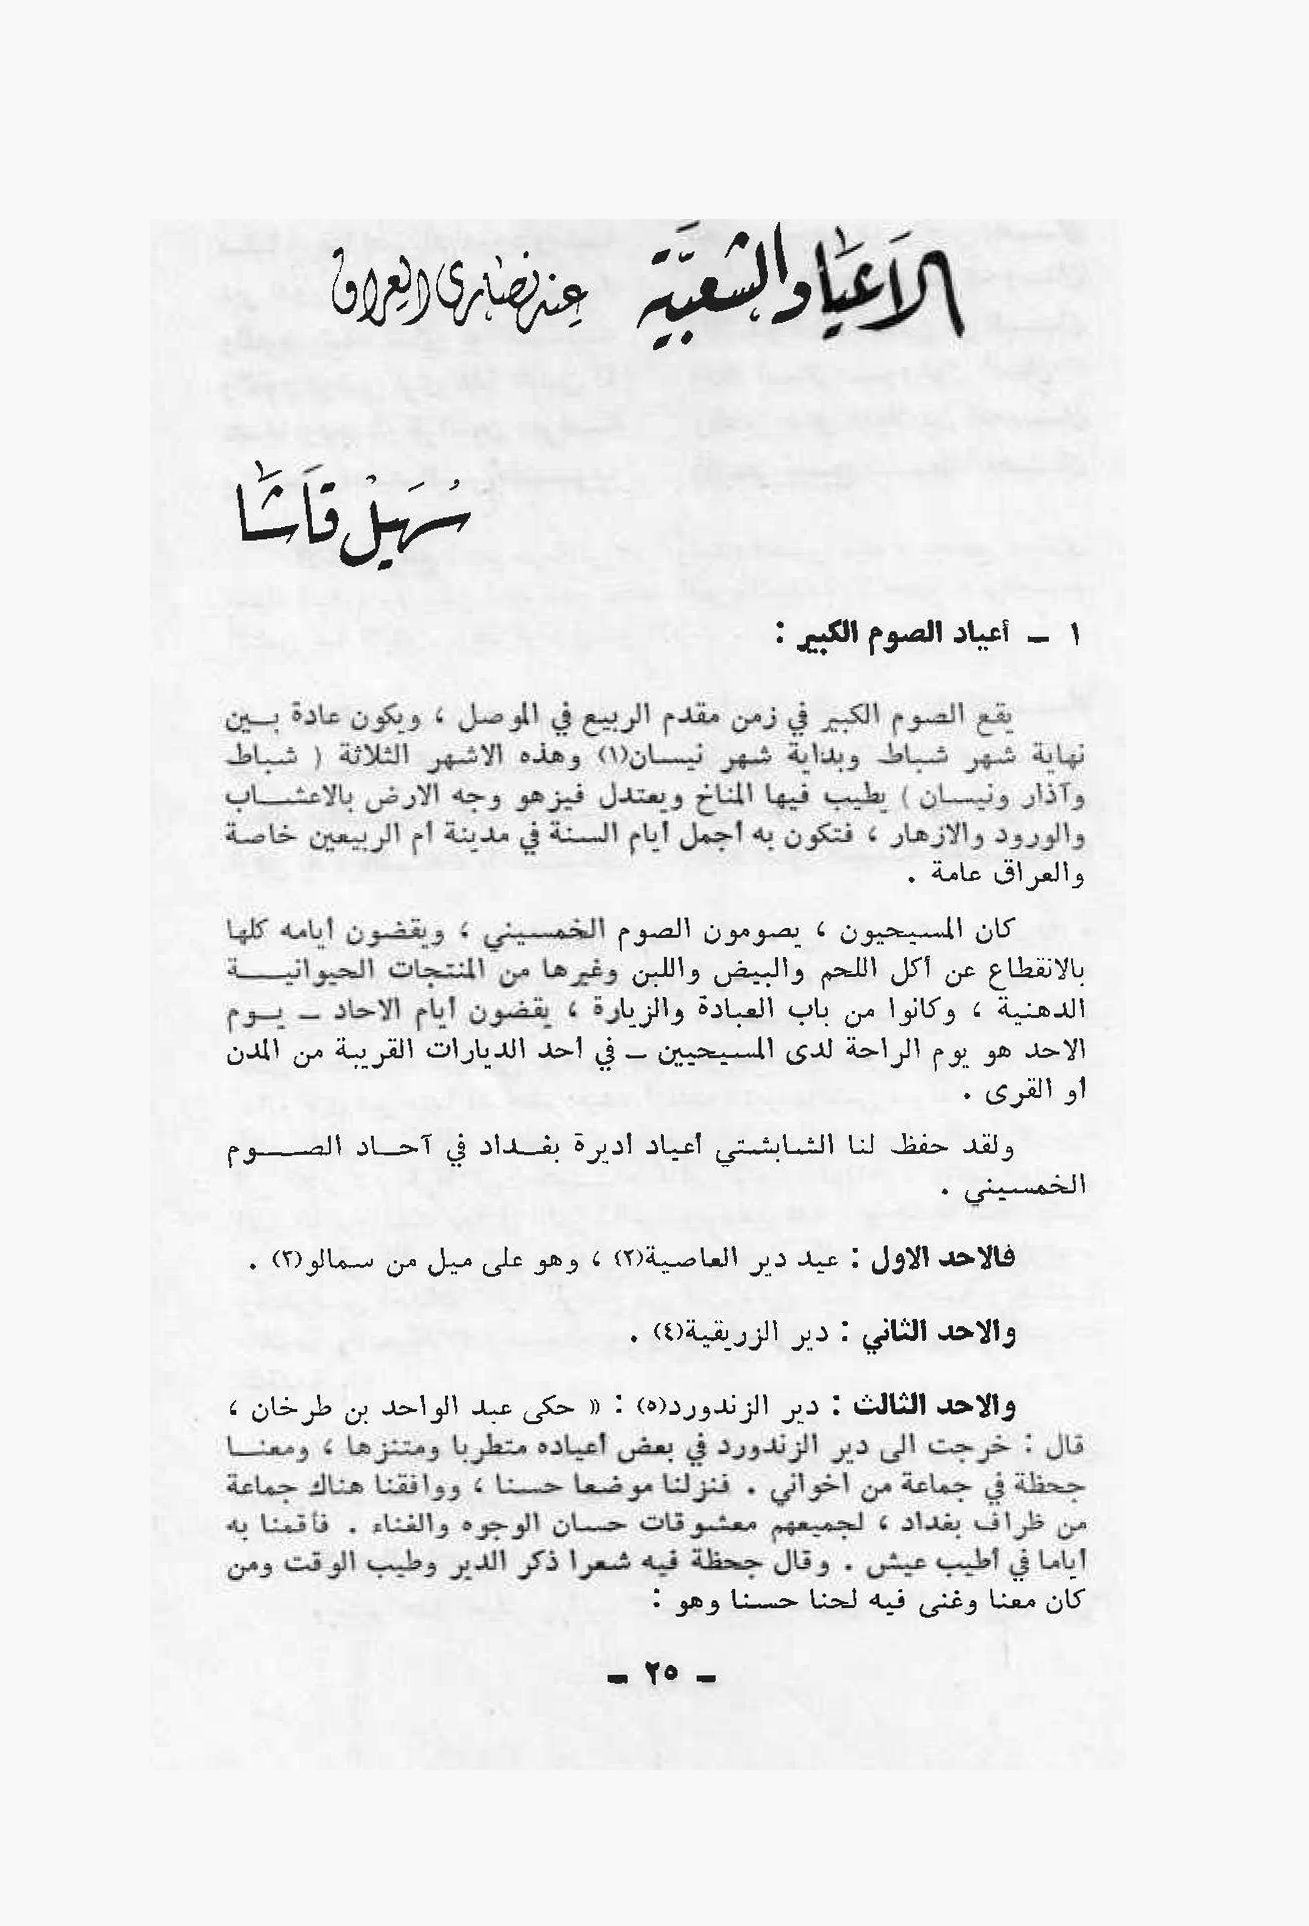 الأعياد الشعبية عند نصارى العراق
سهيل قاشا
١ ــ أعياد الصوم الكبير :
يقع الصوم الكبير في زمن مقدم الربيع في الموصل ، ويكون عادة بــين
نهاية شهر شباط وبداية شهر نيسان(١) وهذه الاشهر الثلاثة ( شباط
وآذار ونيسان ) يطيب فيها المناخ ويعتدل فيزهو وجه الارض بالاعشــاب
والورود والازهار ، فتكون به أجمل أيام السنة في مدينة أم الربيعين خاصة
والعراق عامة .
كان المسيحيون ، يصومون الصوم الخمسيني ، ويقضون أيامه كلها
بالانقطاع عن أكل اللحم والبيض واللبن وغيرها من المنتجات الحيوانيــــة
الدهنية ، وكانوا من باب العبادة والزيارة ، يقضون أيام الاحاد ــ يــوم
الاحد هو يوم الراحة لدى المسيحيين ــ في أحد الديارات القريبة من المدن
أو القرى .
ولقد حفظ لنا الشابشتي أعياد أديرة بغــداد في آحــاد الصــــوم
الخمسيني .
فالاحد الاول : عيد دير العاصية(٢) ، وهو على ميل من سمالو(٣) .
والاحد الثاني : دير الزريقية(٤) .
والاحد الثالث : دير الزندورد(٥) : « حكى عبد الواحد بن طرخان ،
قال : خرجت الى دير الزندورد في بعض أعياده متطربا ومتنزها ، ومعنــا
جحظة في جماعة من اخواني . فنزلنا موضعا حسنا ، ووافقنا هناك جماعة
من ظراف بغداد ، لجميعهم معشوقات حسان الوجوه والغناء . فأقمنا به
أياما في أطيب عيش . وقال جحظة فيه شعرا ذكر الدير وطيب الوقت ومن
كان معنا وغنى فيه لحنا حسنا وهو :
ــ ٢٥ ــ